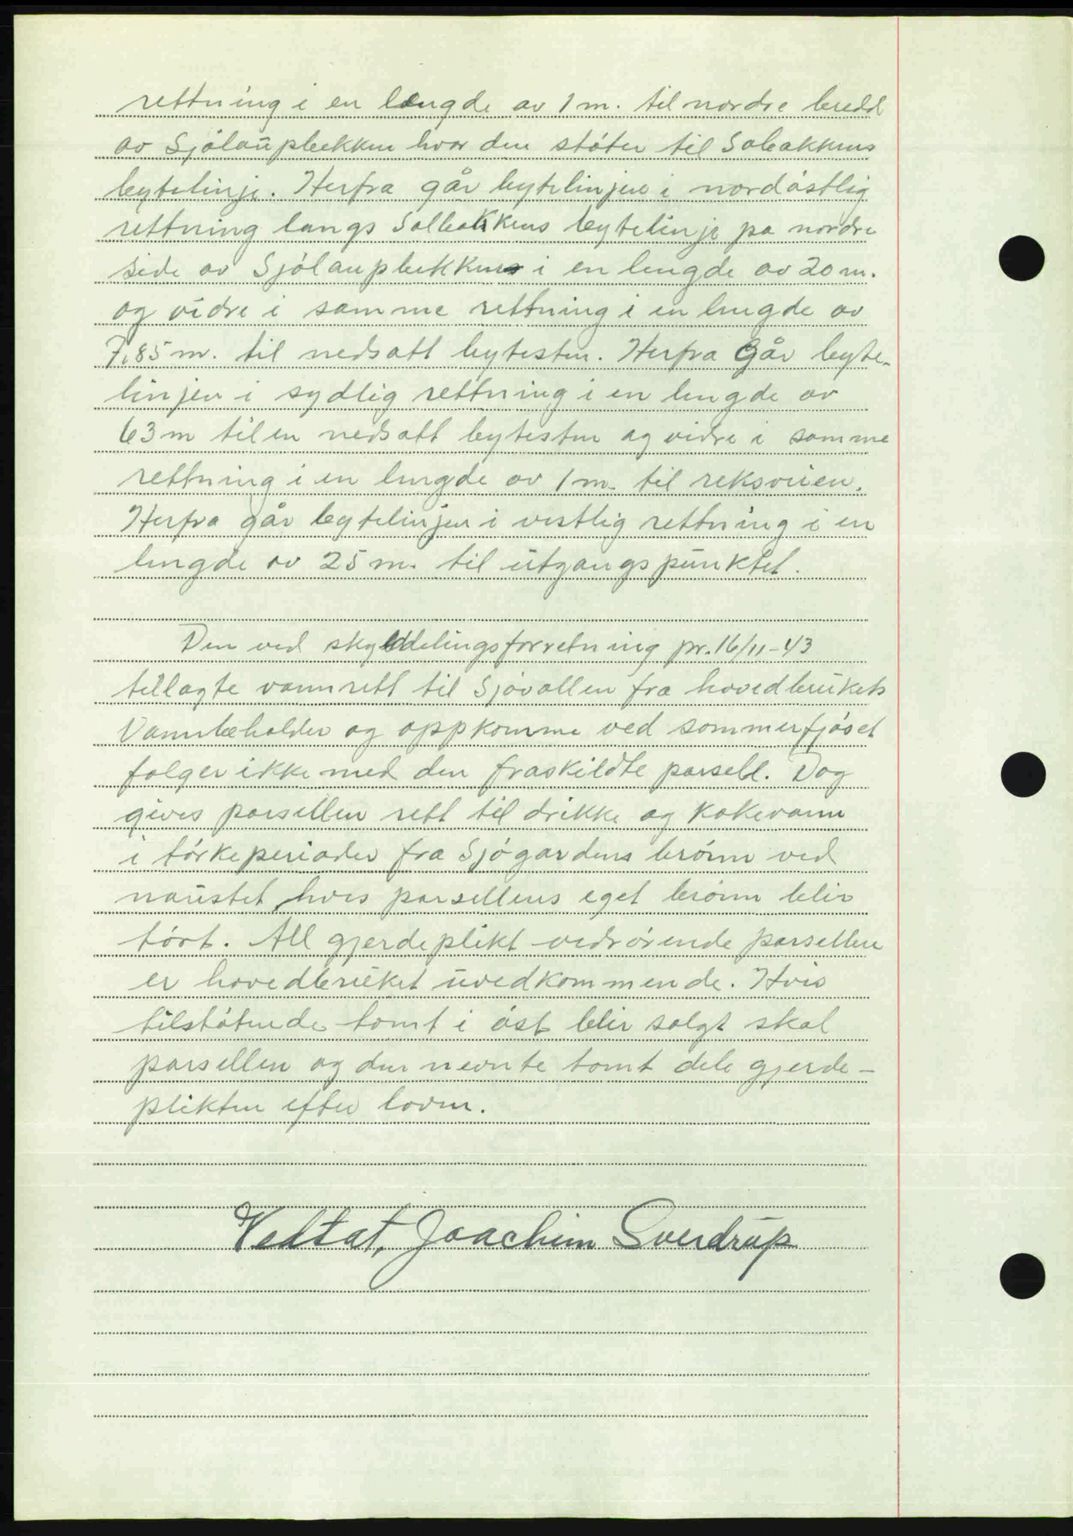 rettning i en lengde av 1 m. til nordre bredd
av Sjölaupbekken hvor den støter til Solbakkens
bytelinje. Herfra går bytelinjen i nordöstlig
rettning langs Solbakkens bytelinje på nordre
side av Sjölaupbekken i en lengde av 20 m.
og vidre i samme rettning i en lengde av
7,85 m. til nedsatt bytesten. Herfra går byte-
linjen i sydlig rettning i en lengde av
63 m til en nedsatt bytesten og vidre i samme
rettning i en lengde av 1 m. til riksveien.
Herfra går bytelinjen i vestlig rettning i en
lengde av 25 m. til utgangspunktet.
Den ved skylddelingsforretning pr. 16/11-43
tillagte vannrett til Sjövollen fra hovedbrukets
Vannbeholder og oppkomme ved sommerfjöset
følger ikke med den fraskildte parsell. Dog
gives parsellen rett til drikke og kokevann
i törkeperioder fra Sjögardens brönn ved
naustet, hvis parsellens eget brönn blir
tört. All gjerdeplikt vedrörende parsellen
er hovedbruket uvedkommende. Hvis
tilstötende tomt i öst blir solgt skal
parsellen og den nevnte tomt dele gjerde-
plikten efter loven.
Vedtat, Joachim Sverdrup